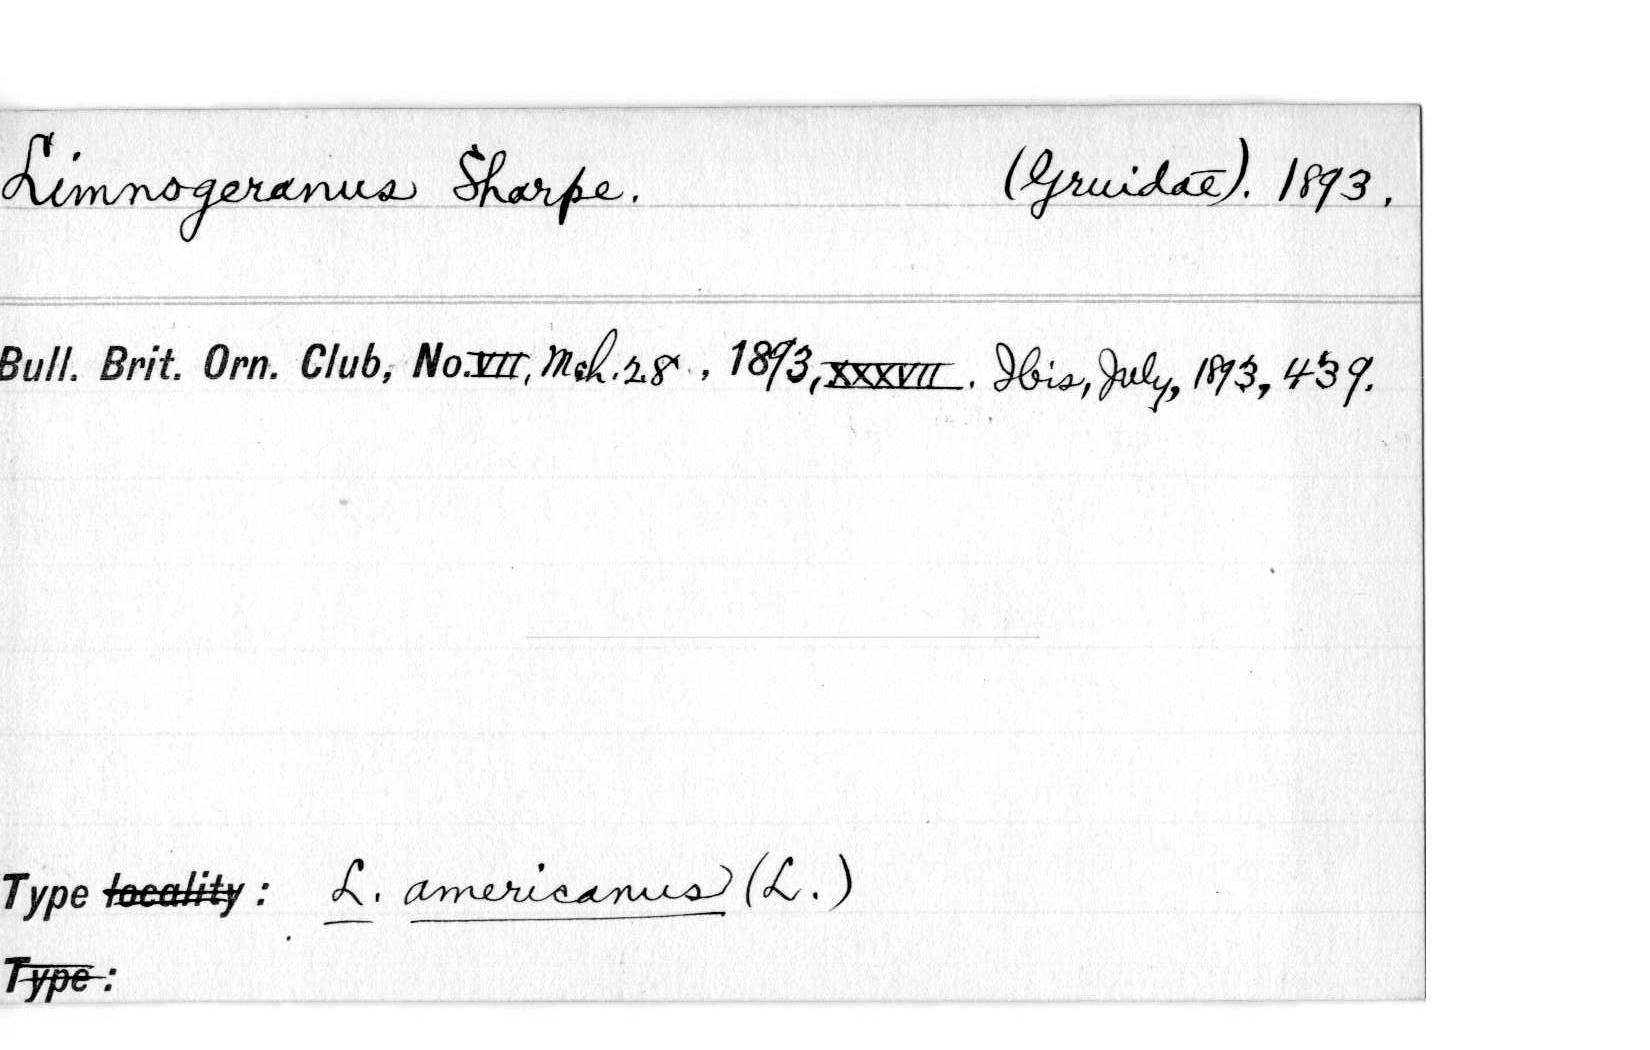 Limnogeranus Sharpe. (Gruidae). 1893.
Bull. Brit. Orn. Club, No. VII, Mch. 28., 1893, XXXVII. Ibis, July, 1893, 439.
Type locality: L. americanus (L.)
Type: